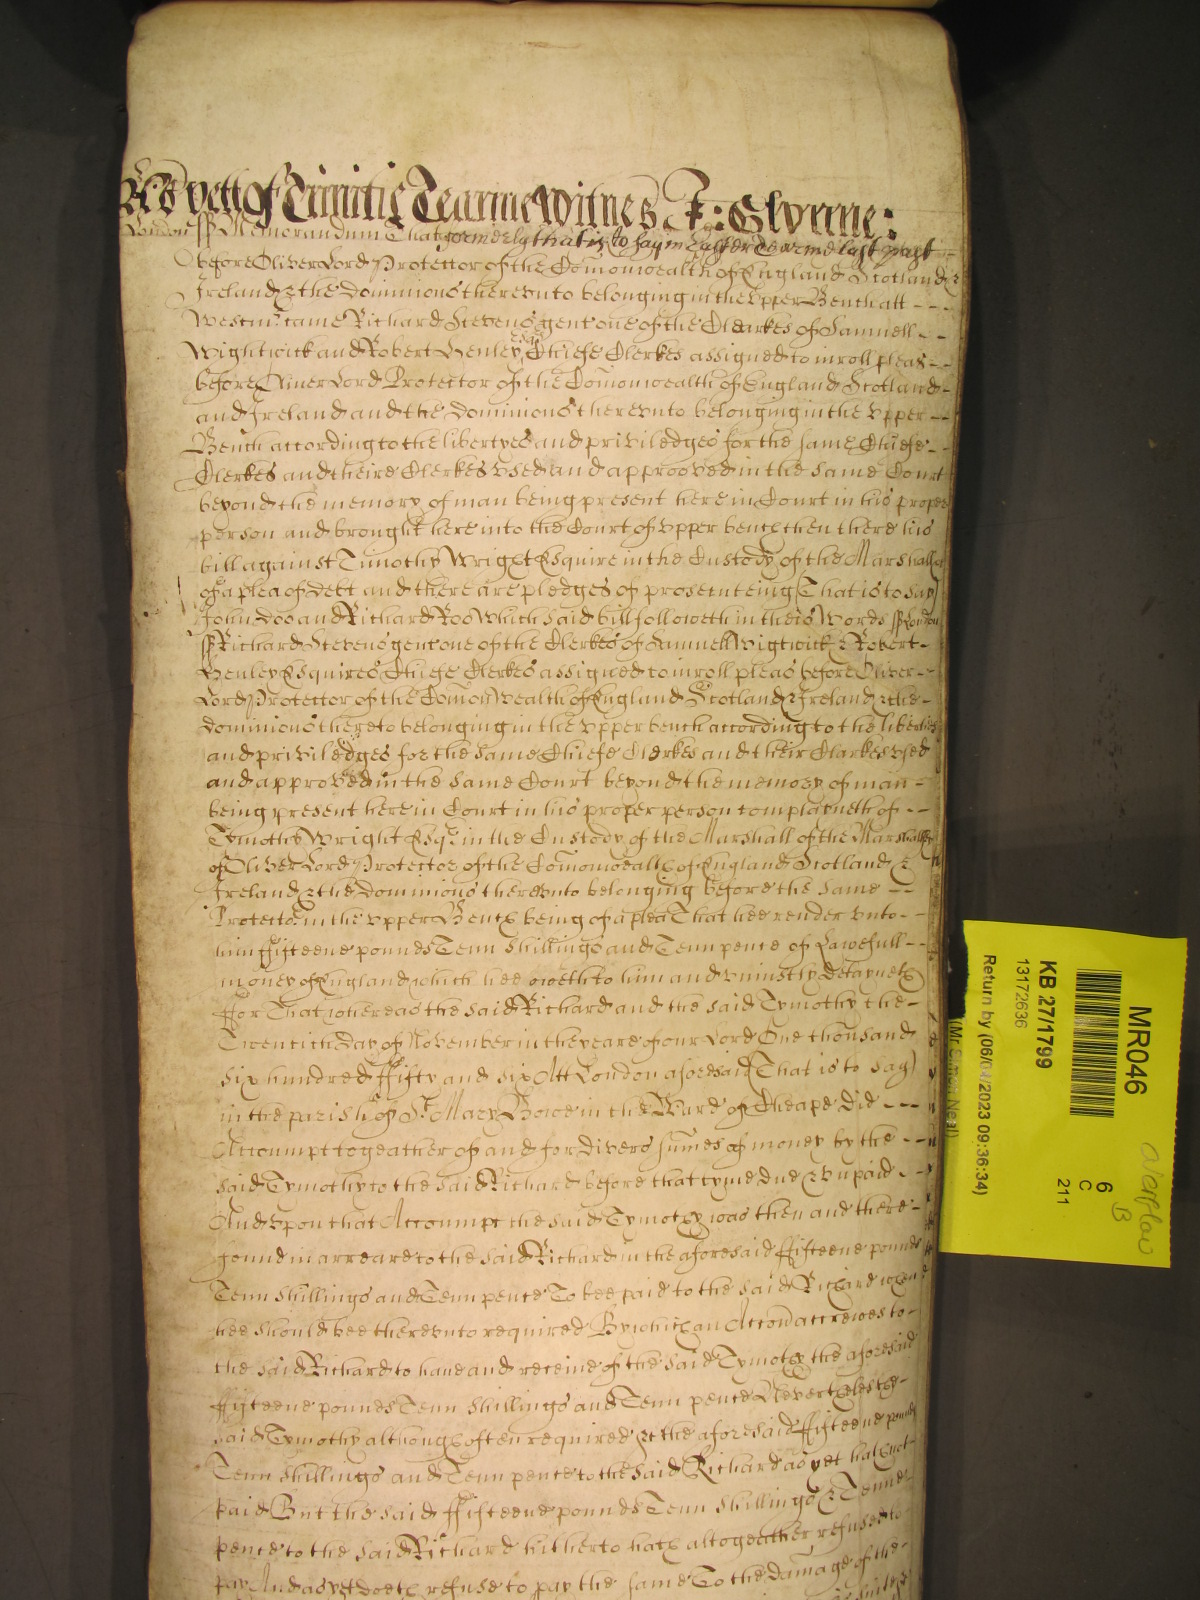 As yett of Trinitie Tearme Witnes J: Glynne:
London ss Memorandum That formerly that is to say in Easter Tearme last past
before Oliver Lord Protector of the Comonwealth of England Scotland &
Ireland & the Dominions therevnto belonging in the Vpper Bench att ---
Westmr: came Richard Stevens gent one of the Clearkes of Samuell --
Wightwick and Robert Henley Esqrs Chiefe Clerkes assigned to inroll pleas --
before Oliver Lord Protector of the Comonwealth of England Scotland -
and Ireland and the Dominions therevnto belonging in the Vpper --
Bench according to the libertyes and priviledges for the same Chiefe --
Clerkes and theire Clerkes vsed and approoved in the same Court
beyond the memory of man being present here in Court in his proper
person and brought here into the Court of Vpper bench then there his
bill against Timothy Wright Esquire in the Custody of the Marshall &
of a plea of debt and there are pledges of prosecuteing That is to say
John Doo and Richard Roo Which said bill followeth in theis Words ss London
ss Richard Stevens gent one of the Clerkes of Samuell Wigtwick & Robert -
Henley Esquires Chiefe Clerkes assigned to inroll pleas before Oliver -
Lord Protector of the Comon Wealth of England Scotland & Ireland & the -
dominions thereto belonging in the Vpper bench according to the liberties
and priviledges for the same Chiefe Clerkes and their Clarkes vsed
and approved in the same Court beyond the memory of man -
being present here in Court in his proper person complayneth of --
Tymothy Wright Esqr: in the Custody of the Marshall of the Marshalsey
of Oliver Lord Protector of the Comonwealth of England Scotland &
Ireland & the Dominions therevnto belonging before the same --
Protector in the Vpper Bench being of a plea That hee render vnto --
him ffifteene pounds Tenn shillings and Tenn pence of Lawefull --
money of England which hee oweth to him and vniustly detayneth
ffor That whereas the said Richard and the said Tymothy the -
Twentith Day of November in the yeare of our Lord One thousand
six hundred ffifty and six Att London aforesaid (That is to say)
in the parish of St Mary Bowe in the Ward of Cheape Did ---
Accompt togeather of and for divers sumes of money by the --
said Tymothy to the said Richard before that tyme due & vnpaid --
And vpon that Accompt the said Tymothy was then and there -
found in arreare to the said Richard in the aforesaid ffifteene pounds
Tenn shillings and Tenn pence To bee paid to the said Richard when
hee should bee therevnto required By which an Accon accrewes to -
the said Richard to haue and receiue of the said Tymothy the aforesaid
ffifteene pounds Tenn shillings and Tenn pence Neverthelesse the -
said Tymothy although often required &c the aforesaid ffifteene pounds
Tenn shillings and Tenn pence to the said Richard as yet hath not -
paid But the said ffifteene pounds Tenn shillings & Tenne
pence to the said Richard hitherto hath altogeather refused to
pay And as yet doeth refuse to pay the same To the damage of the -
MR046
KB 27/1799
13172636
Return by (06/04/2023 09:36:34)
(Mr Simon Neal)
6
C
211
overflow
B